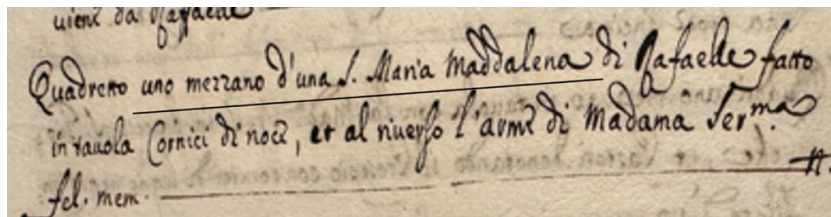 viene da Raffaele
Quadretto uno mezzano d'una S. Maria Maddalena di Rafaelle fatto
in tavola Cornici di noce, et al riverso l'arme di Madama Ser.ma
fel. mem. n.